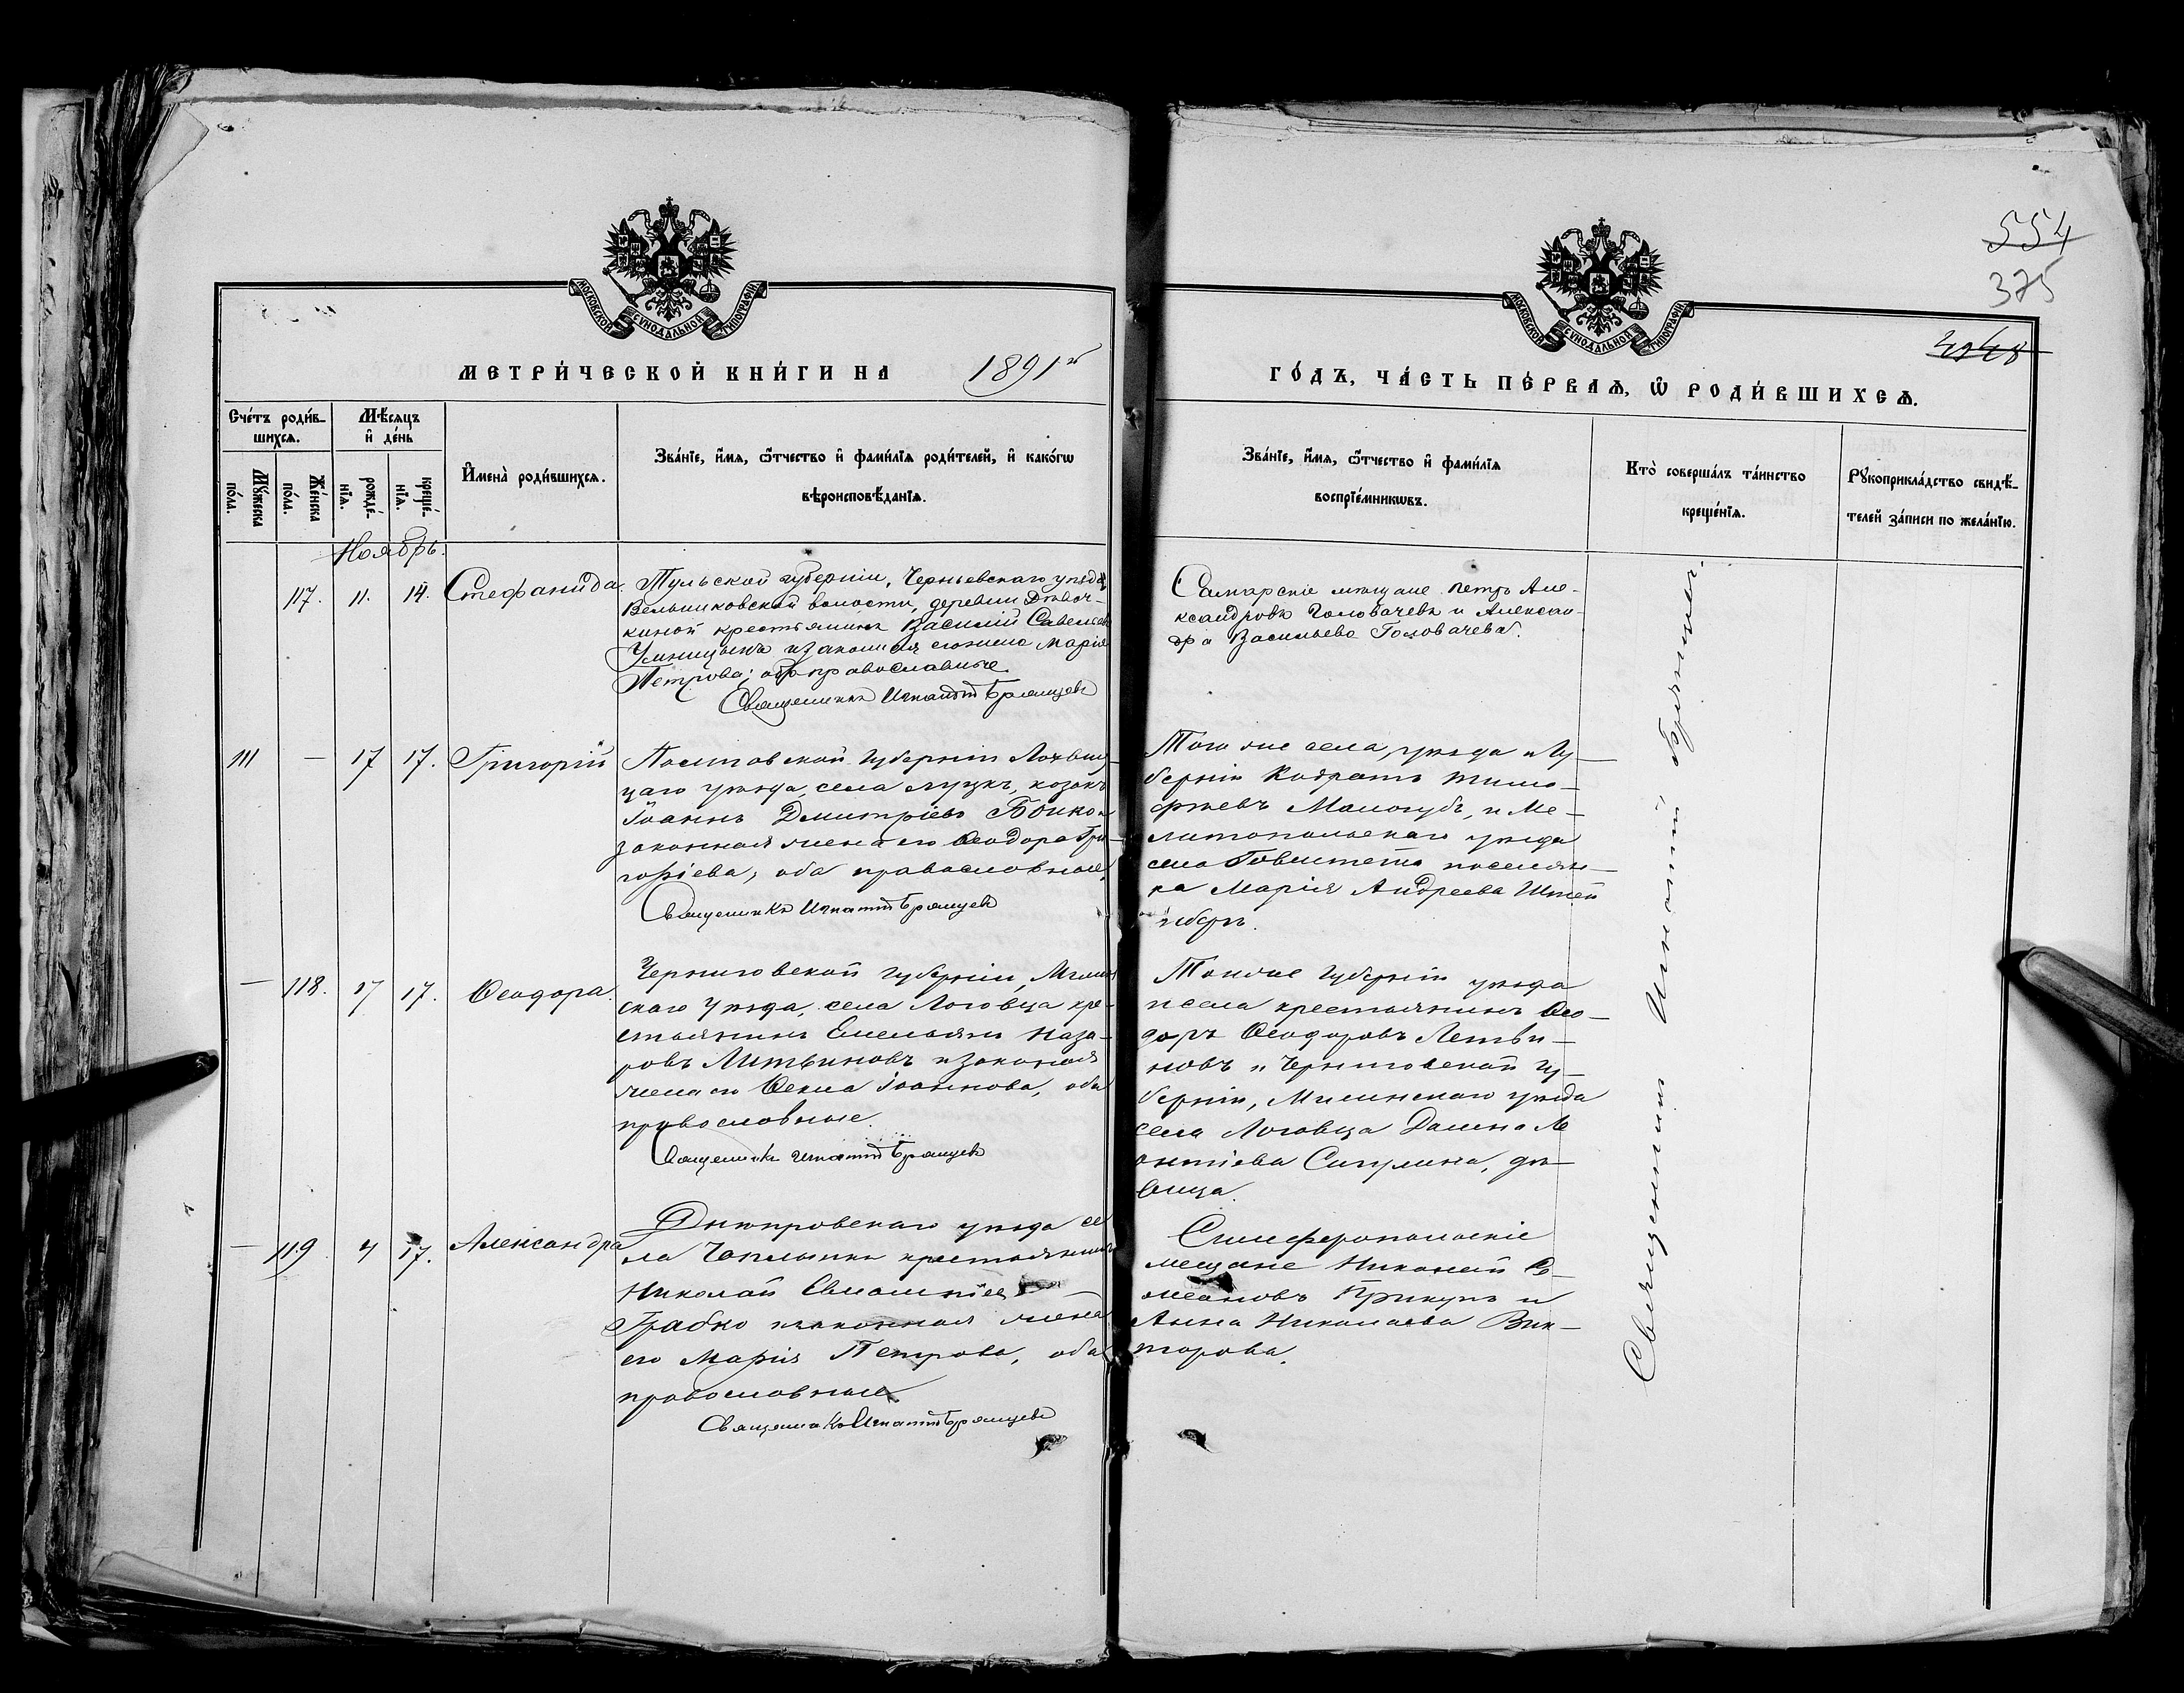 554
375
МОСКОВСКОЙ СУНОДАЛЬНОЙ ТИПОГРАФІИ
МОСКОВСКОЙ СУНОДАЛЬНОЙ ТИПОГРАФІИ
МЕТРИ́ЧЕСКОЙ КНИ́ГИ НА 1891й
ГО́ДЪ, ЧА́СТЬ ПЕ́РВАѦ, Ѡ РОДИ́ВШИХСѦ.
Сче́тъ роди́в-
шихсѧ.
Мѣ́сѧцъ
и҆ де́нь
Мꙋ́жеска
по́ла.
Же́нска
по́ла.
рожде́-
нїѧ.
креще́-
нїѧ.
И҆мена̀ роди́вшихсѧ.
Зва́нїе, и҆́мѧ, ѻ҆́тчество и҆ фами́лїѧ роди́телей, и҆ како́гѡ
вѣроисповѣ́данїѧ.
Зва́нїе, и҆́мѧ, ѻ҆́тчество и҆ фами́лїѧ
воспрїе́мникѡвъ.
Кто̀ соверша́лъ та́инство
креще́нїѧ.
Рꙋкоприкла́дство свидѣ́-
телей за́писи по жела́нїю.
Ноябрь.
117. 11. 14. Стефанида.
Тульской губерніи, Черньевскаго уѣзда,
волости, деревни Дѣвоч-
киной крестьянинъ Василій Савельевъ
и законная его жена Марія
Петрова; оба православные
Священникъ Игнатій Брянцевъ
Самарскіе мѣщане Петръ Але-
ксандровъ Головачевъ и Алексан-
дра Васильева Головачева.
111 — 17 17. Григорій
Полтавской губерніи Лохвиц-
цаго уѣзда, села Луцкъ, козакъ
Іоаннъ Дмитріевъ Бойко и
законная жена его Ѳеодора Гри-
горіева, оба православные.
Священникъ Игнатій Брянцевъ
Того же села, уѣзда и Гу-
берніи Кодратъ Тимо-
фѣевъ Малогубъ, и Ме-
литопольскаго уѣзда
села поселян-
ка Марія Андреева Штей
нберъ.
— 118. 17 17. Ѳеодора.
Черниговской губерніи, Мглин
скаго уѣзда, села Логовца кре-
стьянинъ Емельянъ Наза-
ровъ Литвиновъ и законная
жена его Ѳекла Іоаннова, оба
православные.
Священникъ Игнатій Брянцевъ
Тойже Губерніи уѣзда
и села крестьянинъ Ѳео-
доръ Ѳеодоровъ Летви-
новъ и Черниговской гу-
берніи, Мглинскаго уѣзда
села Логовца Ле
онтіева дѣ-
вица.
— 119. 4 17. Александра
Днѣпровскаго уѣзда се
ла Чаплынки крестьянинъ
Николай
Грабко и законная жена
его Марія Петрова, оба
православные
Священникъ Игнатій Брянцевъ
Симферопольскіе
мещане Николай Ро-
мановъ Прикупъ и
Анна Николаева Вик-
торова.
Священникъ Игнатій Брянцевъ.